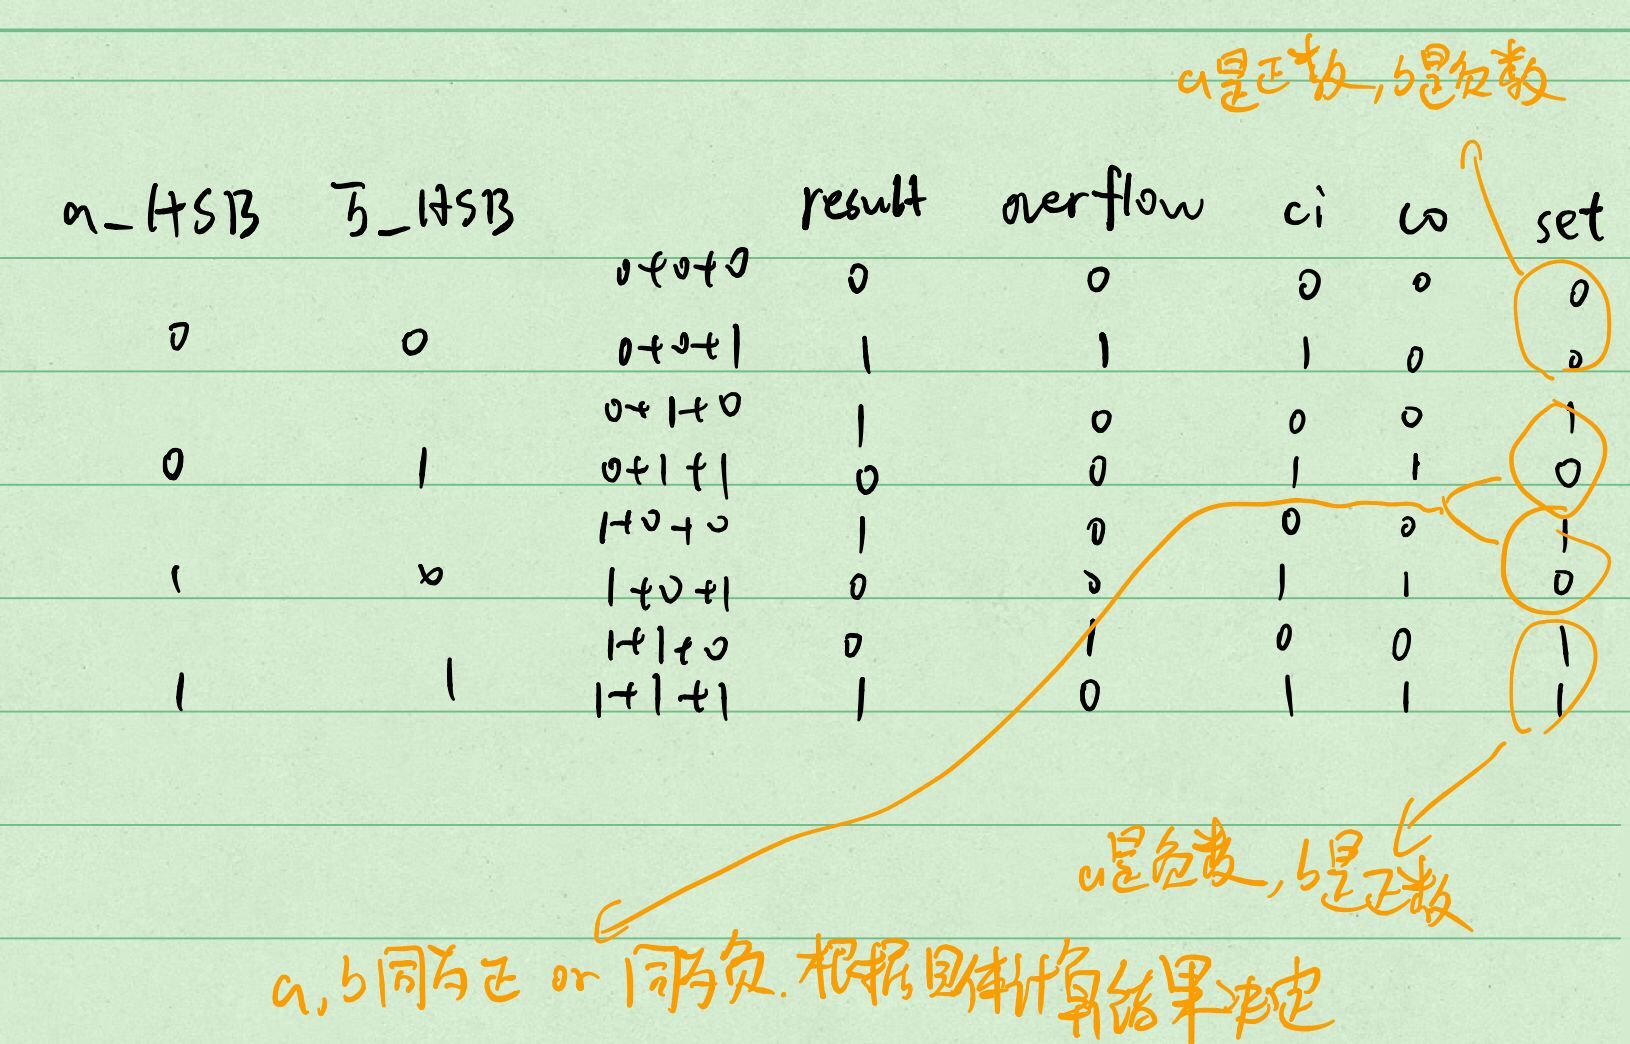 a是正数,b是负数
a_HSB b̅_HSB result overflow ci co set
0+0+0 0 0 0 0 0
0 0 0+0+1 1 1 1 0 0
0+1+0 1 0 0 0 1
0 1 0+1+1 0 0 1 1 0
1+0+0 1 0 0 0 1
1 0 1+0+1 0 0 1 1 0
1+1+0 0 1 0 0 1
1 1 1+1+1 1 0 1 1 1
a是负数,b是正数
a,b同为正 or 同为负.根据具体计算结果决定